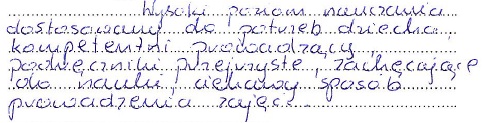 Wysoki poziom nauczania
dostosowany do potrzeb dziecka,
kompetentni prowadzący,
podręczniki przejrzyste, zachęcające
do nauki, ciekawy sposób
prowadzenia zajęć.